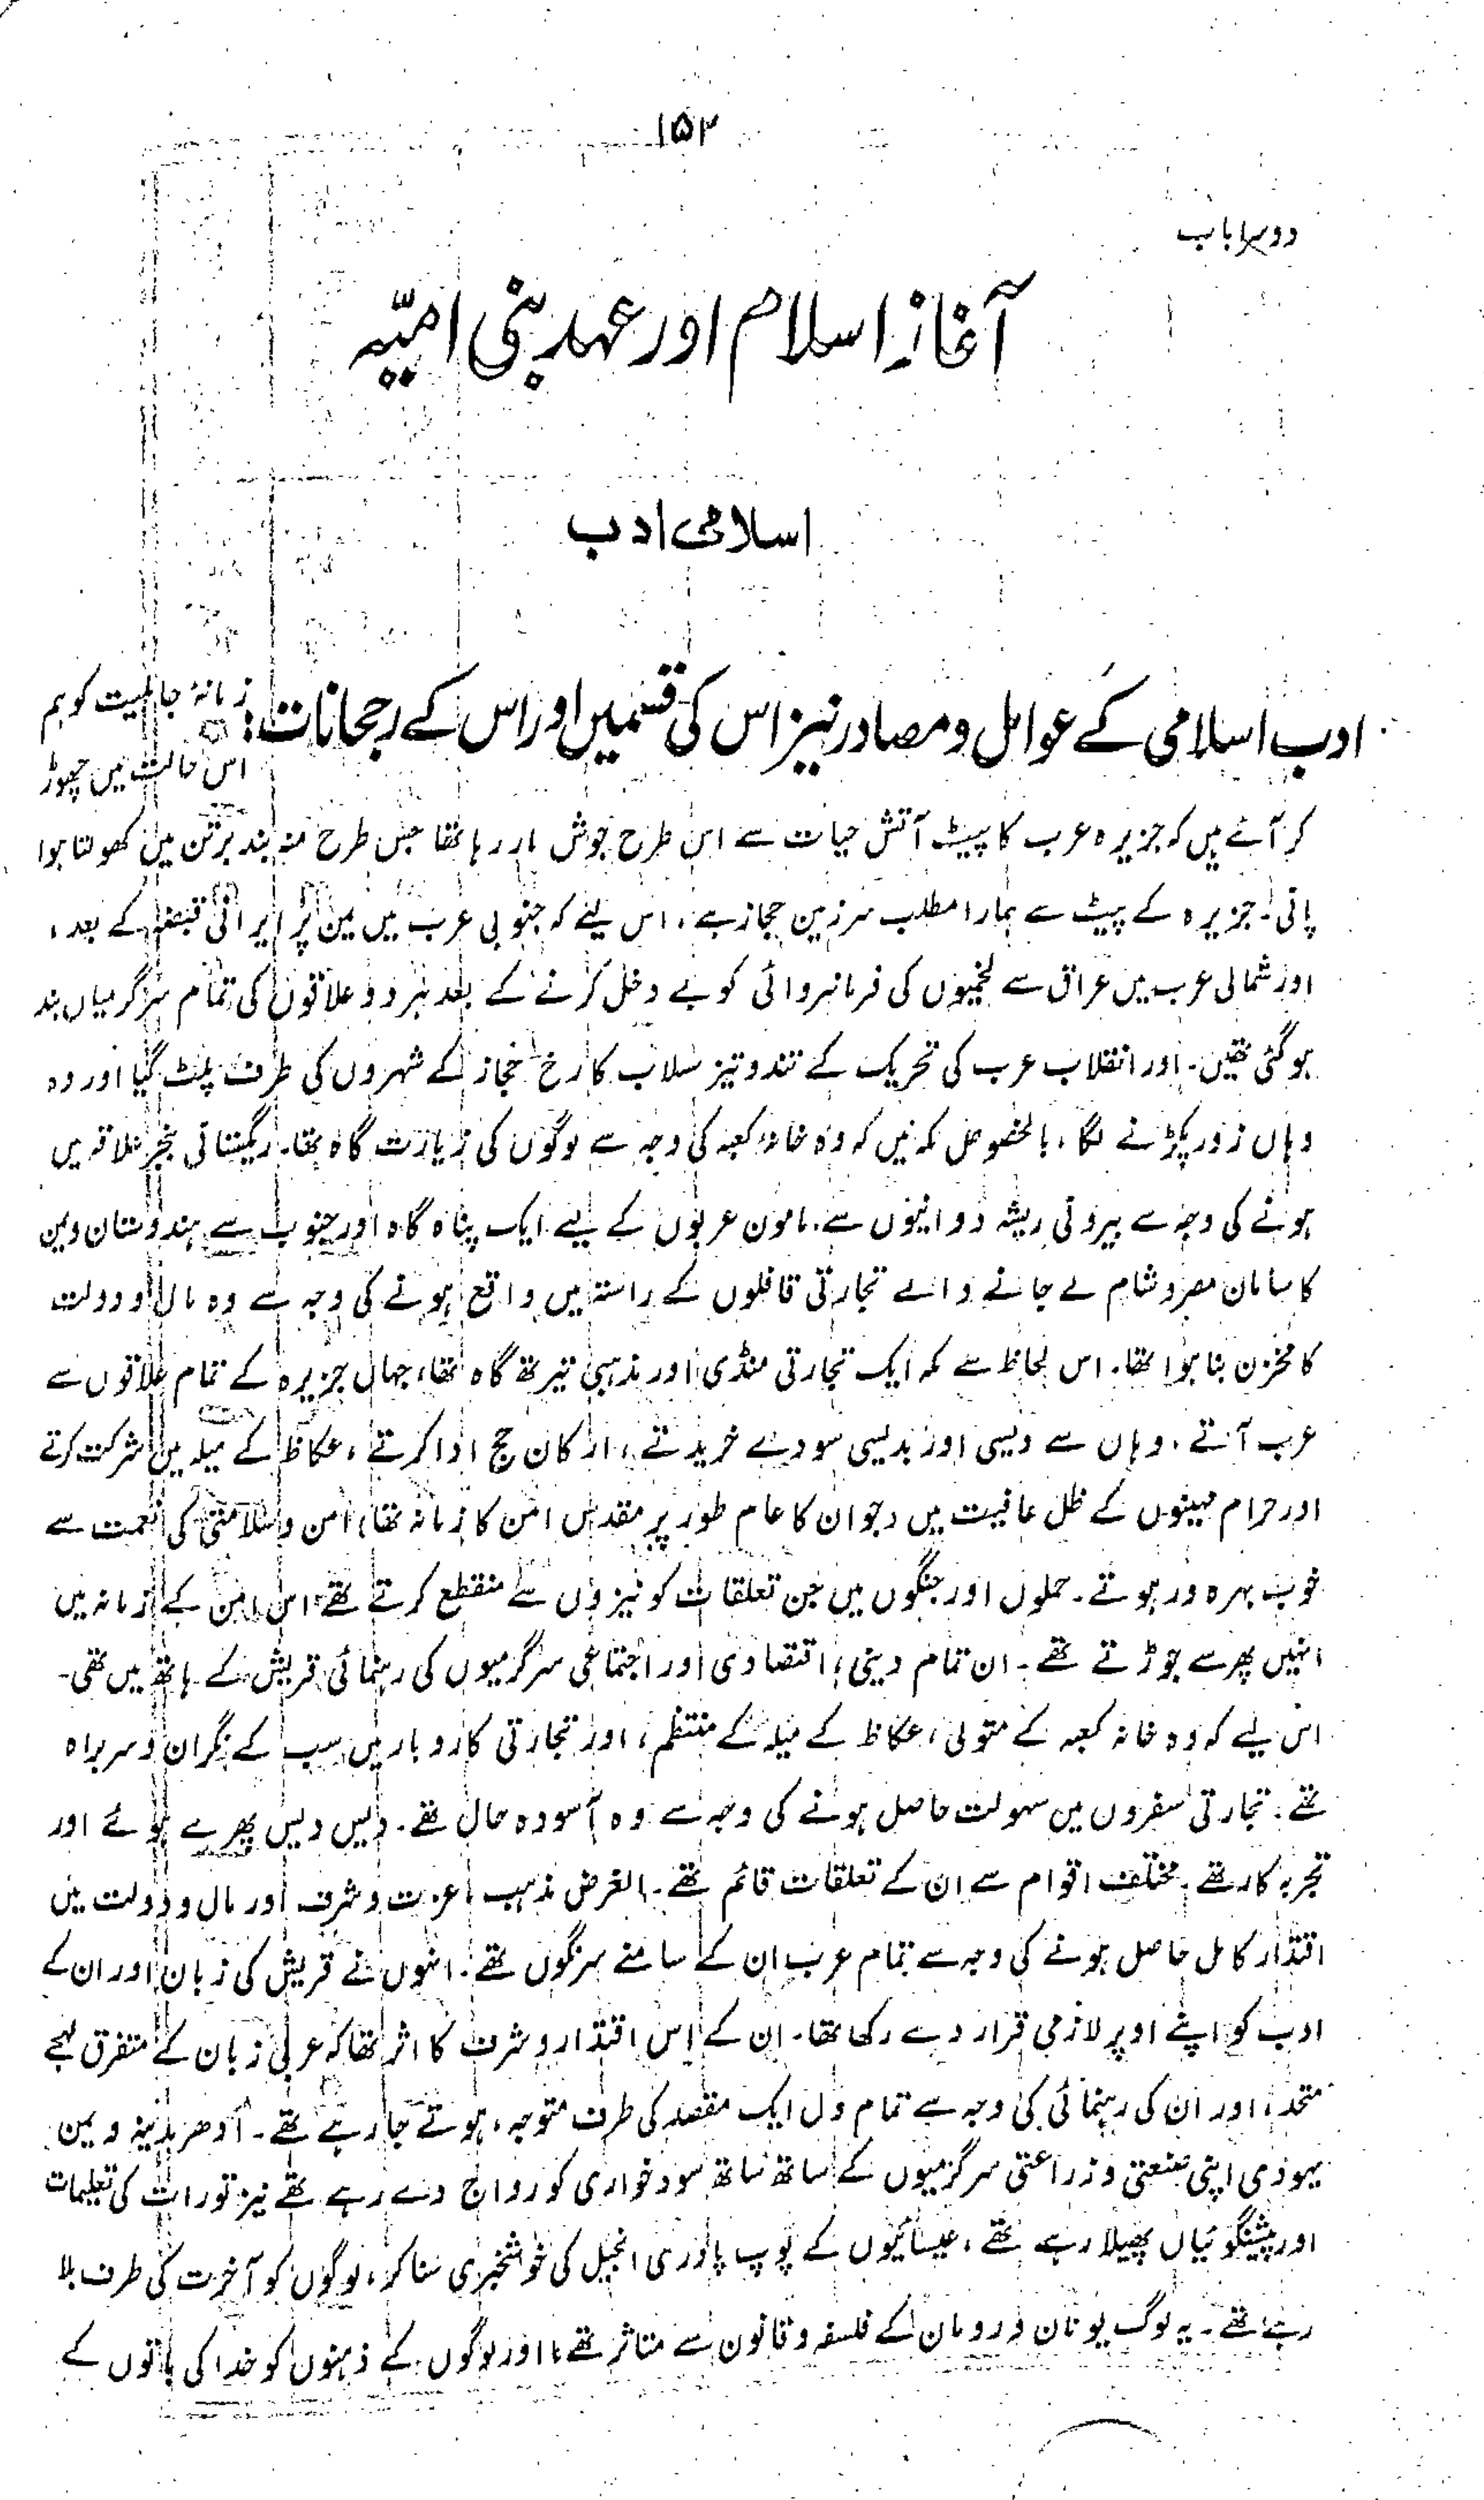 ۱۵۲
دوسرا باب
آغازِ اسلام اور عہد بنی امیّہ
اسلامی ادب
ادب اسلامی کے عوامل و مصادر نیز اس کی قسمیں اور اس کے رجحانات: زمانۂ جاہلیت کو ہم
اس حالت میں چھوڑ
کر آئے ہیں کہ جزیرہ عرب کا پیٹ آتش حیات سے اس طرح جوش مار رہا تھا جس طرح منہ بند برتن میں کھولتا ہوا
پانی۔ جزیرہ کے پیٹ سے ہمارا مطلب سرزمین حجاز ہے، اس لیے کہ جنوبی عرب میں یمن پر ایرانی قبضہ کے بعد،
اور شمالی عرب میں عراق سے لخمیوں کی فرمانروائی کو بے دخل کرنے کے بعد ہر دو علاقوں کی تمام سرگرمیاں بند
ہو گئی تھیں۔ اور انقلاب عرب کی تحریک کے تند و تیز سلاب کا رخ حجاز کے شہروں کی طرف پلٹ گیا اور وہ
وہاں زور پکڑنے لگا، بالخصوص مکہ میں کہ وہ خانہ کعبہ کی وجہ سے لوگوں کی زیارت گاہ تھا۔ ریگستانی بنجر علاقہ میں
ہونے کی وجہ سے بیرونی ریشہ دوانیوں سے مامون عربوں کے لیے ایک پناہ گاہ اور جنوب سے ہندوستان و یمن
کا سامان مصر و شام لے جانے والے تجارتی قافلوں کے راستہ میں واقع ہونے کی وجہ سے وہ مال و دولت
کا مخزن بنا ہوا تھا۔ اس لحاظ سے مکہ ایک تجارتی منڈی اور مذہبی تیرتھ گاہ تھا، جہاں جزیرہ کے تمام علاقوں سے
عرب آتے، وہاں سے دیسی اور بدیسی سودے خریدتے، ارکان حج ادا کرتے، عکاظ کے میلہ میں شرکت کرتے
اور حرام مہینوں کے ظل عافیت میں (جو ان کا عام طور پر مقدس امن کا زمانہ تھا) امن و سلامتی کی نعمت سے
خوب بہرہ ور ہوتے۔ حملوں اور جنگوں میں جن تعلقات کو نیزوں سے منقطع کرتے تھے اس امن کے زمانہ میں
انہیں پھر سے جوڑتے تھے۔ ان تمام دینی، اقتصادی اور اجتماعی سرگرمیوں کی رہنمائی قریش کے ہاتھ میں تھی۔
اس لیے کہ وہ خانہ کعبہ کے متولی، عکاظ کے میلہ کے منتظم، اور تجارتی کاروبار میں سب کے نگران و سربراہ
تھے۔ تجارتی سفروں میں سہولت حاصل ہونے کی وجہ سے وہ آسودہ حال تھے۔ دیس دیس پھرے ہوئے اور
تجربہ کار تھے۔ مختلف اقوام سے ان کے تعلقات قائم تھے۔ الغرض مذہب، عزت و شرف اور مال و دولت میں
اقتدار کامل حاصل ہونے کی وجہ سے تمام عرب ان کے سامنے سرنگوں تھے۔ انہوں نے قریش کی زبان اور ان کے
ادب کو اپنے اوپر لازمی قرار دے رکھا تھا۔ ان کے اس اقتدار و شرف کا اثر تھا کہ عربی زبان کے متفرق لہجے
متحد، اور ان کی رہنمائی کی وجہ سے تمام دل ایک مقصد کی طرف متوجہ، ہوتے جا رہے تھے۔ اُدھر مدینہ و یمن
یہودی اپنی صنعتی و زراعتی سرگرمیوں کے ساتھ ساتھ سود خواری کو رواج دے رہے تھے نیز تورات کی تعلیمات
اور پیشنگوئیاں پھیلا رہے تھے، عیسائیوں کے پوپ پادری انجیل کی خوشخبری سنا کر، لوگوں کو آخرت کی طرف بلا
رہے تھے۔ یہ لوگ یونان و رومان کے فلسفہ و قانون سے متاثر تھے، اور لوگوں کے ذہنوں کو خدا کی باتوں کے